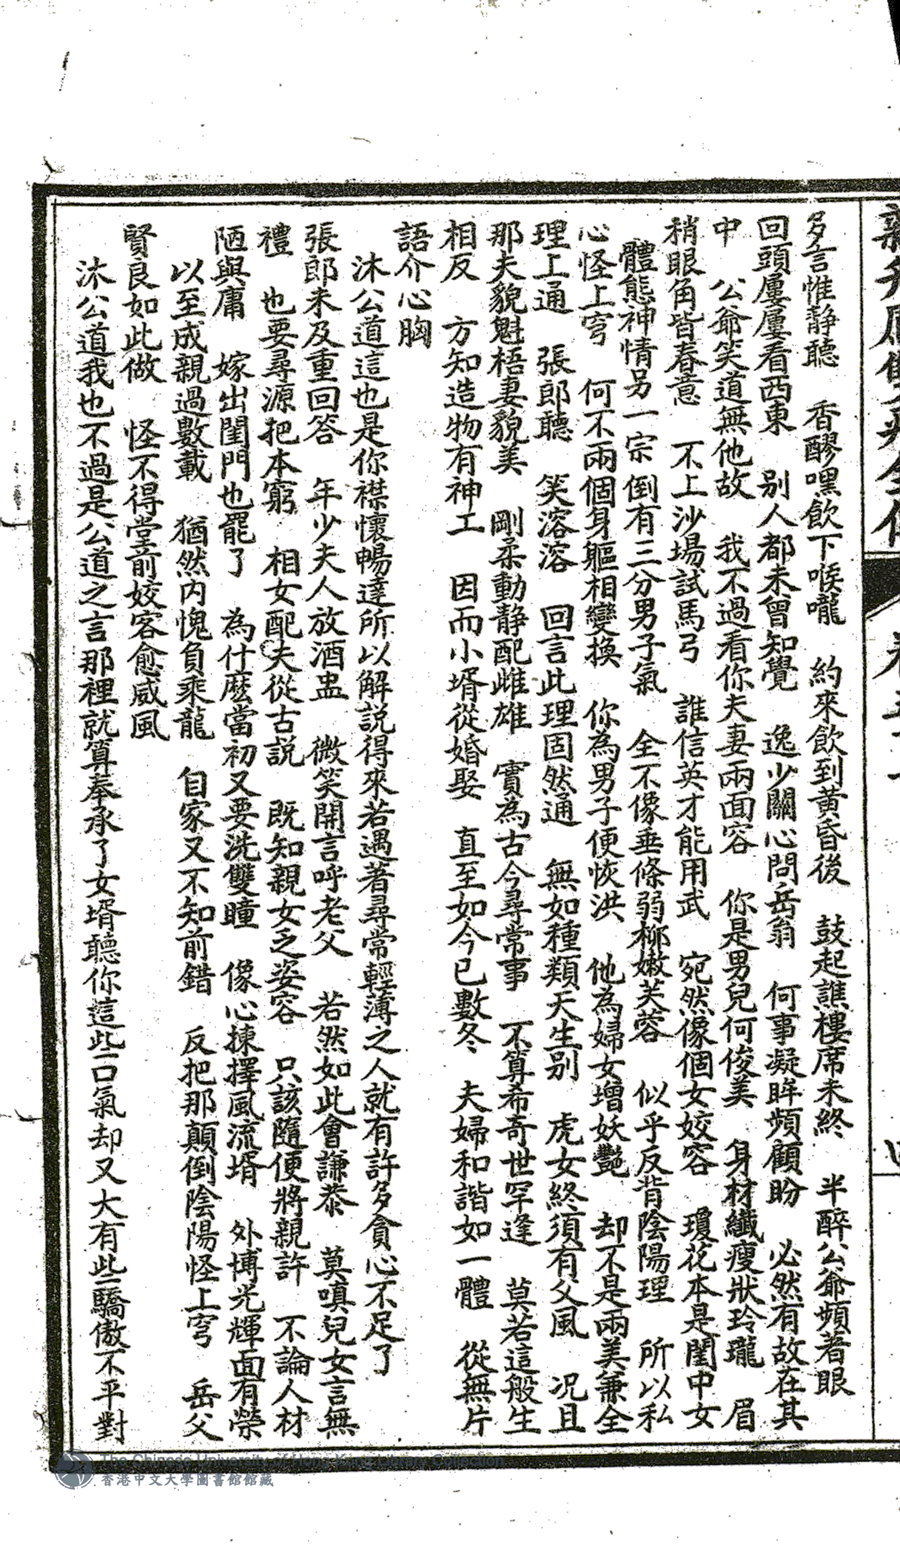 多言惟静聽　香醪嘿飲下喉嚨　約來飲到黃昏後　鼓起譙樓席未終　半醉公爺頻着眼
回頭屢屢看西東　别人都未曾知覺　逸少關心問岳翁　何事凝眸頻顧盼　必然有故在其
中　公爺笑道無他故　我不過看你夫妻兩面容　你是男兒何俊美　身材纖瘦狀玲瓏　眉
稍眼角皆春意　不上沙場試馬弓　誰信英才能用武　宛然像個女姣容　瓊花本是閨中女
體態神情另一宗　倒有三分男子氣　全不像垂條弱柳嫩芙蓉　似乎反背陰陽理　所以私
心怪上穹　何不兩個身軀相變換　你為男子便恢洪　他為婦女增妖艷　却不是兩美兼全
理上通　張郎聽　笑溶溶　回言此理固然通　無如種類天生别　虎女終須有父風　况且
那夫貌魁梧妻貌美　剛柔動静配雌雄　實為古今尋常事　不算希奇世罕逢　莫若這般生
相反　方知造物有神工　因而小壻從婚娶　直至如今已數冬　夫婦和諧如一體　從無片
語介心胸
沐公道這也是你襟懷暢達所以解説得來若遇著尋常輕薄之人就有許多貪心不足了
張郎未及重回答　年少夫人放酒盅　微笑開言呼老父　若然如此會謙恭　莫嗔兒女言無
禮　也要尋源把本窮　相女配夫從古説　既知親女乏姿容　只該隨便將親許　不論人材
陋與庸　嫁出閨門也罷了　為什麽當初又要洗雙瞳　像心揀擇風流壻　外博光輝面有榮
以至成親過數載　猶然内愧負乘龍　自家又不知前錯　反把那顛倒陰陽怪上穹　岳父
賢良如此做　怪不得堂前姣客愈威風
沐公道我也不過是公道之言那裡就算奉承了女壻聽你這些口氣却又大有些驕傲不平對
四
The Chinese University of Hong Kong Library Collection
香港中文大學圖書館館藏